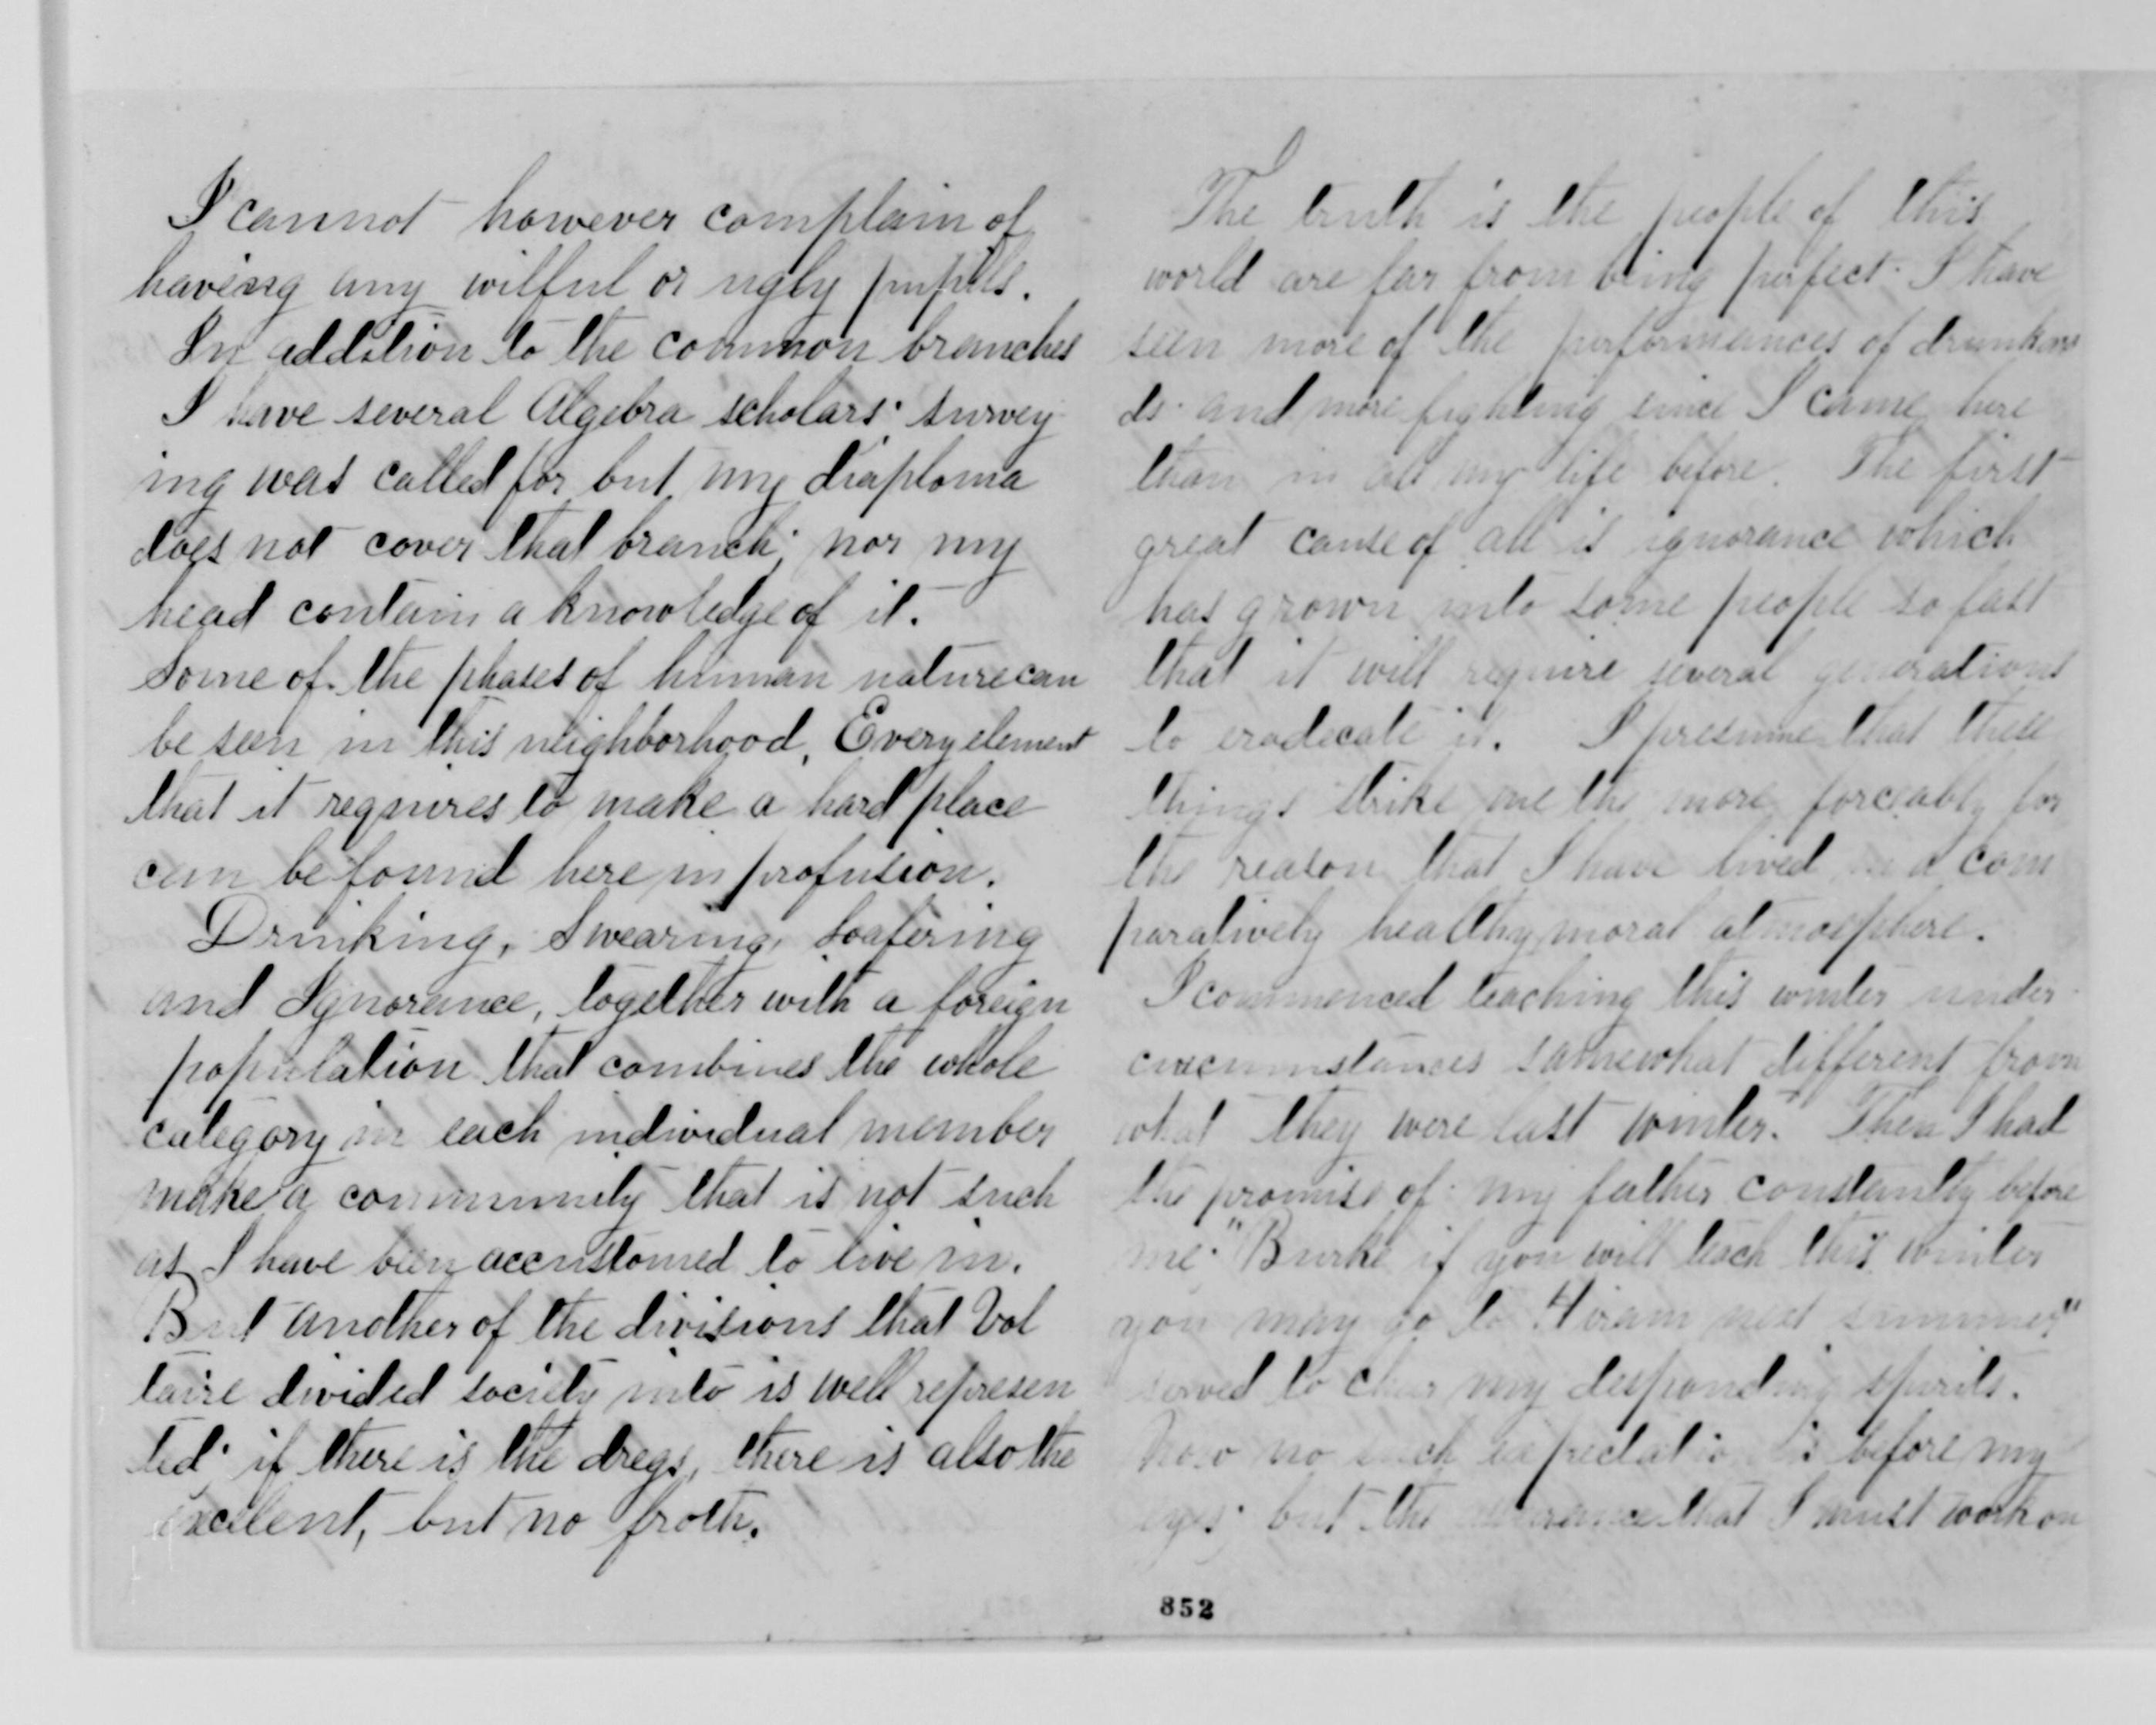 I cannot however complain of
having any wilful or ugly pupils.
In addition to the common branches
I have several Algebra scholars. survey
ing was called for but my diaploma
does not cover that branch; nor my
head contain a knowledge of it.
Some of the phases of human nature can
be seen in this neighborhood, Every element
that it requires to make a hard place
can be found here in profusion.
Drinking, Swearing, Loafering
and Ignorance, together with a foreign
population that combines the whole
category in each individual member
make a community that is not such
as I have been accustomed to live in.
But another of the divisions that Vol
taire divided society into is well represen
ted. if there is the dregs, there is also the
excellent, but no froth.
The truth is the people of this
world are far from being perfect. I have
seen more of the performances of drunkar
ds. and more fighting since I came here
than in all my life before. The first
great cause of all is ignorance which
has grown into some people so fast
that it will require several generations
to eradicate it. I presume that these
things strike me the more forceably for
the reason that I have lived in a com
paratively healthy moral atmosphere.
I commenced teaching this winter under
circumstances somewhat different from
what they were last winter. Then I had
the promise of my father constantly before
me. "Burke if you will teach this winter
you may go to Hiram next summer"
served to cheer my desponding spirits.
Now no such expectation is before my
eyes; but the that I must work on
852